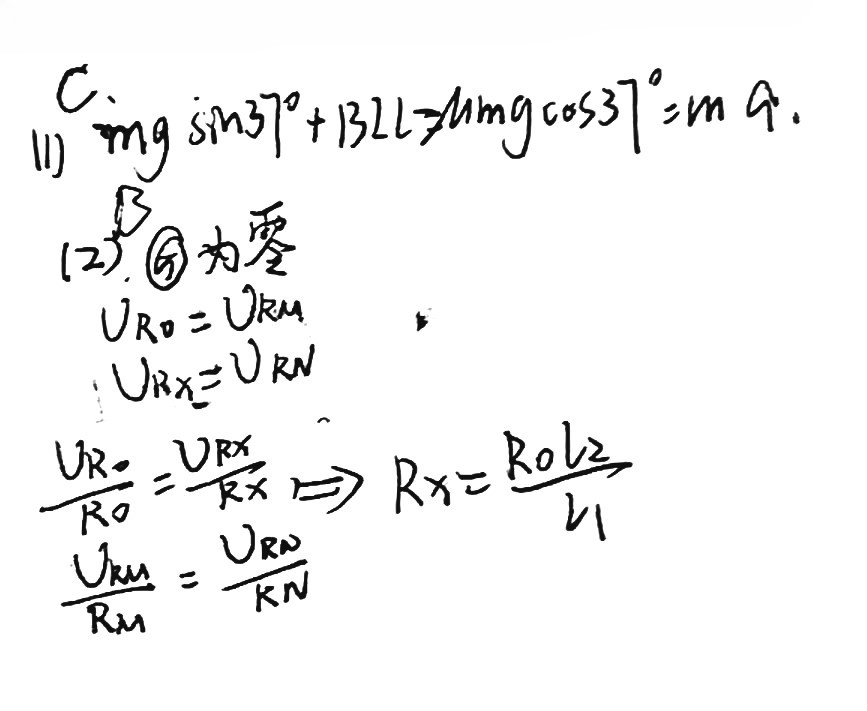 C
(1) mg sin37°+BIL-μmgcos37°=ma.
B
(2) Ⓖ为零
URO=URM
URX=URN
URO/RO=URX/RX ⇒ RX=ROL2/L1
URM/RM=URN/RN